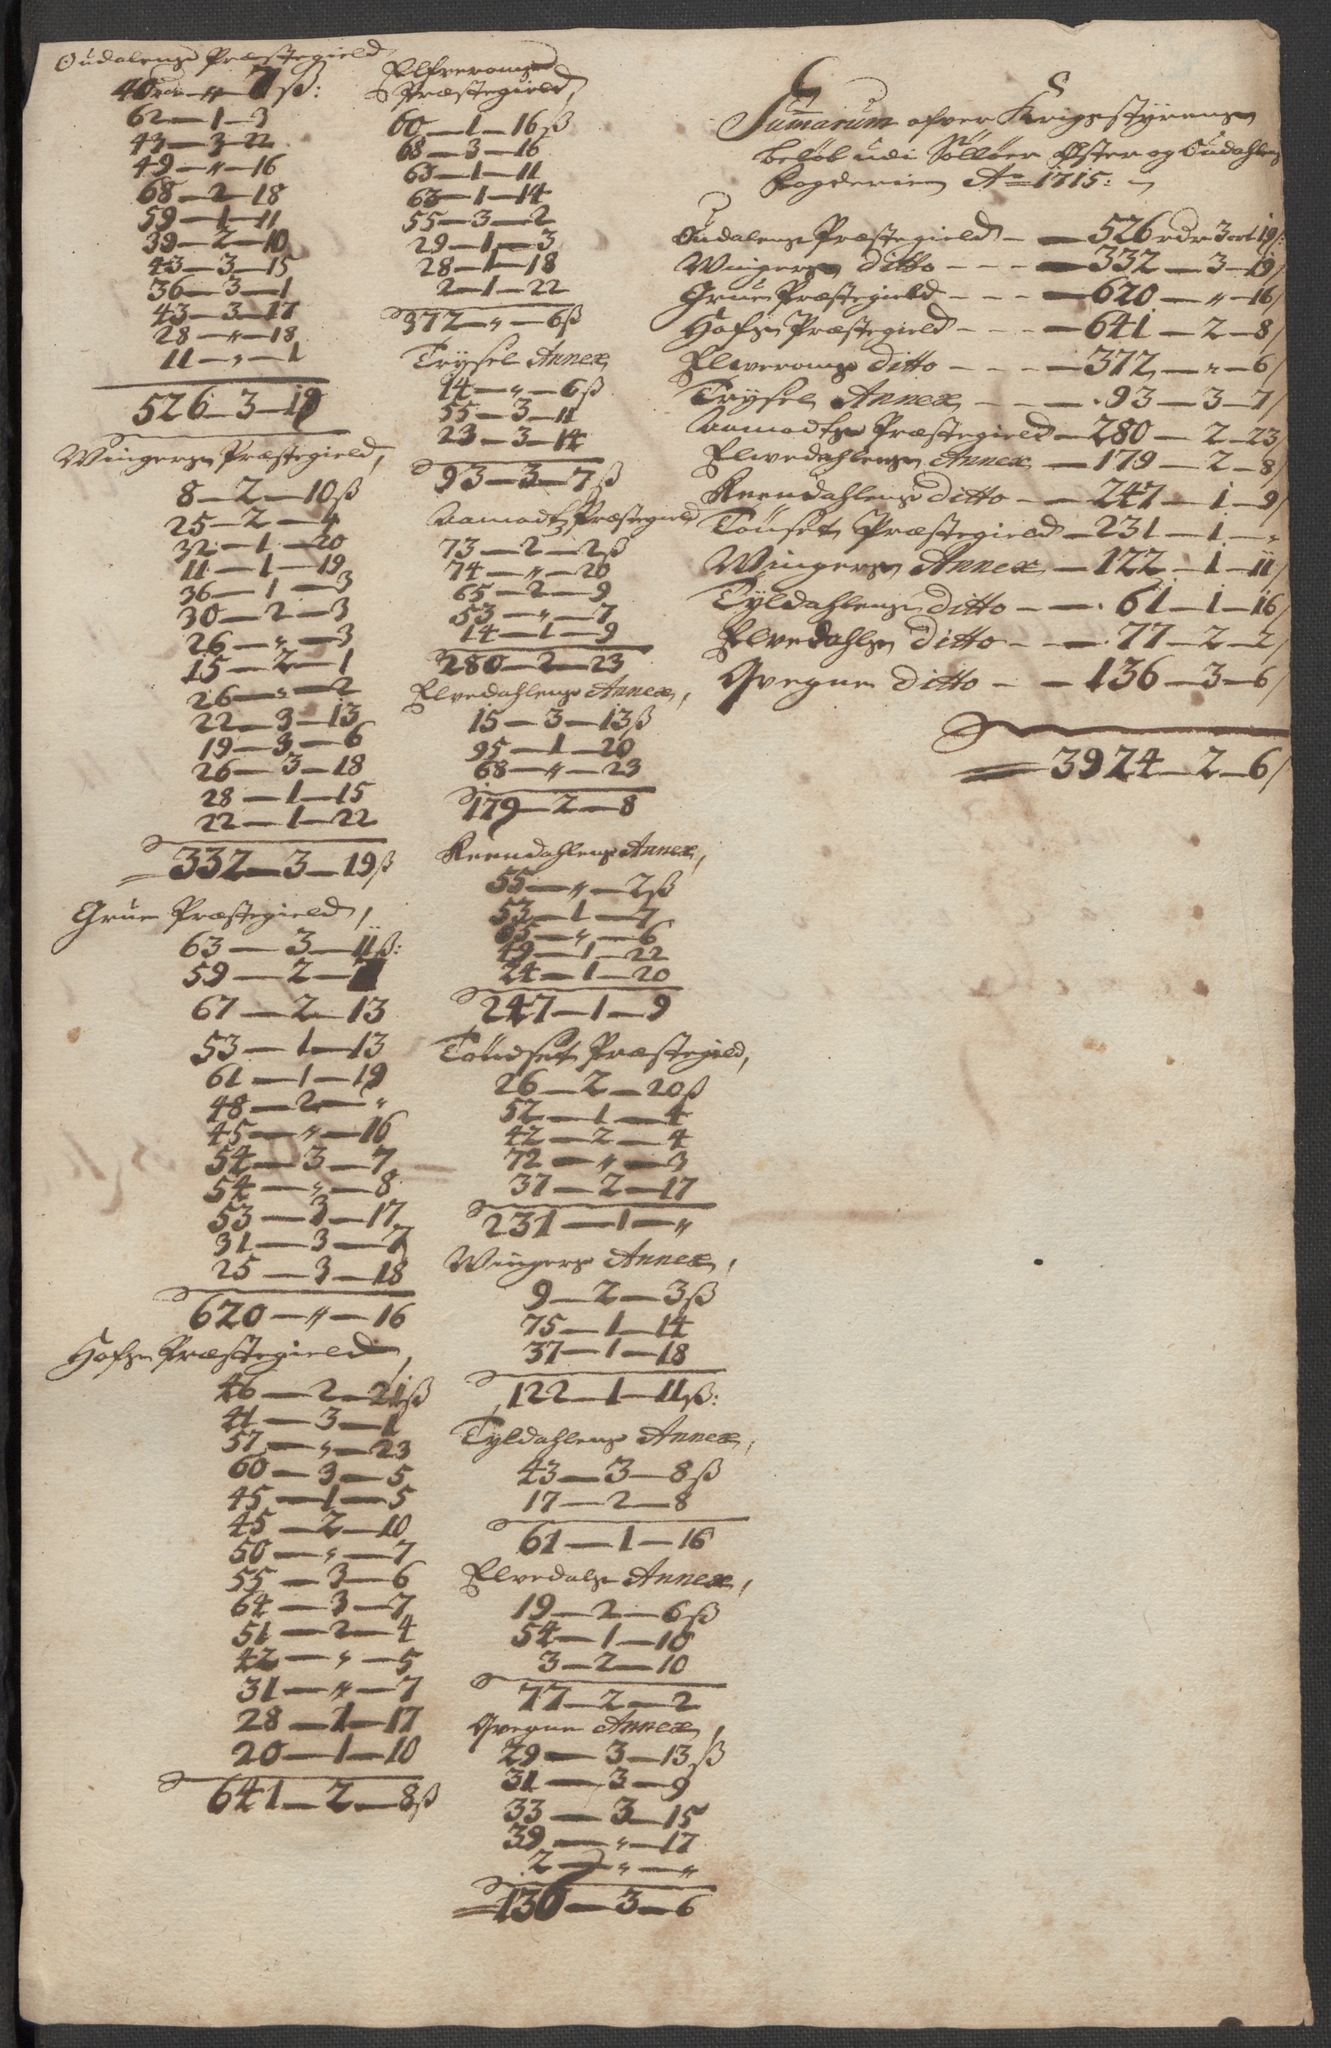 Oudalens Præstegield
40 rdr — " — 7 ß:
62 — 1 — 3
43 — 3 — 22
49 — " — 16
68 — 2 — 18
59 — 1 — 11
39 — 2 — 10
43 — 3 — 15
36 — 3 — 1
43 — 3 — 17
28 — " — 18
11 — " — 1
526 — 3 — 19
Wingers Præstegield,
8 — 2 — 10 ß
25 — 2 — 4
32 — 1 — 20
11 — 1 — 19
36 — 1 — 3
30 — 2 — 3
26 — " — 3
15 — 2 — 1
26 — " — 2
22 — 3 — 13
19 — 3 — 6
26 — 3 — 18
28 — 1 — 15
22 — 1 — 22
332 — 3 — 19 ß
Grue Præstegield,
63 — 3 — 11 ß:
59 — 2 —
67 — 2 — 13
53 — 1 — 13
61 — 1 — 19
48 — 2 — "
45 — " — 16
54 — 3 — 7
54 — " — 8
53 — 3 — 17
31 — 3 — 7
25 — 3 — 18
620 — " — 16
Hofs Præstegield,
46 — 2 — 21 ß
41 — 3 — 1
57 — " — 23
60 — 3 — 5
45 — 1 — 5
45 — 2 — 10
50 — " — 7
55 — 3 — 6
64 — 3 — 7
51 — 2 — 4
42 — " — 5
31 — " — 7
28 — 1 — 17
20 — 1 — 10
641 — 2 — 8 ß
Elfveroms
Præstegield,
60 — 1 — 16 ß
68 — 3 — 16
63 — 1 — 11
63 — 1 — 14
55 — 3 — 2
29 — 1 — 3
28 — 1 — 18
2 — 1 — 22
372 — " — 6 ß
Trysel Annex
14 — " — 6 ß
55 — 3 — 11
23 — 3 — 14
93 — 3 — 7 ß
Aamodts Præstegield
73 — 2 — 2 ß
74 — " — 20
65 — 2 — 9
53 — " — 7
14 — 1 — 9
280 — 2 — 23
Elvedahlens Annex,
15 — 3 — 13 ß
95 — 1 — 20
68 — " — 23
179 — 2 — 8
Reendahlens Annex,
55 — " — 2 ß
53 — 1 — 7
65 — " — 6
49 — 1 — 22
24 — 1 — 20
247 — 1 — 9
Tøndset Præstegield,
26 — 2 — 20 ß
52 — 1 — 4
42 — 2 — 4
72 — " — 3
37 — 2 — 17
231 — 1 — "
Wingers Annex,
9 — 2 — 3 ß
75 — 1 — 14
37 — 1 — 18
122 — 1 — 11 ß:
Tyldahlens Annex,
43 — 3 — 8 ß
17 — 2 — 8
61 — 1 — 16
Elvedals Annex,
19 — 2 — 6 ß
54 — 1 — 10
3 — 2 — 10
77 — 2 — 2
Qvegne Annex,
29 — 3 — 13 ß
31 — 3 — 9
33 — 3 — 15
39 — " — 17
2 — " — "
136 — 3 — 6
Summarum ofver Krigsstyrens
beløb udi Solløer Øster og Oudahlens
Fogderien Ao 1715:
Oudalens Præstegield — 526 rdr 3 ort 19 ß:
Wingers ditto — 332 — 3 — 19/
Grue Præstegield — 620 — " — 16/
Hofs Præstegield — 641 — 2 — 8/
Elveroms ditto — 372 — " — 6/
Trysel Annex — 93 — 3 — 7/
Aamodts Præstegield — 280 — 2 — 23/
Elvedahlens Annex — 179 — 2 — 8/
Reendahlens ditto — 247 — 1 — 9/
Tønset Præstegield — 231 — 1 — "
Wingers Annex — 122 — 1 — 11/
Tyldahlens ditto — 61 — 1 — 16/
Elvedahls ditto — 77 — 2 — 2/
Qvegne ditto — 136 — 3 — 6/
3924 — 2 — 6/